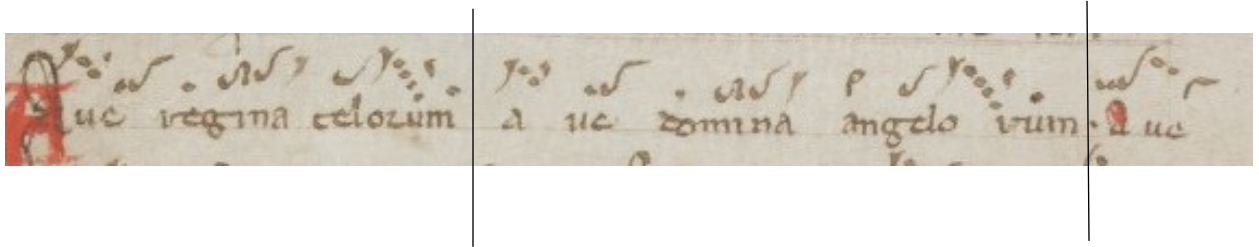 Aue regina celorum a ue domina angelo rum. a ue